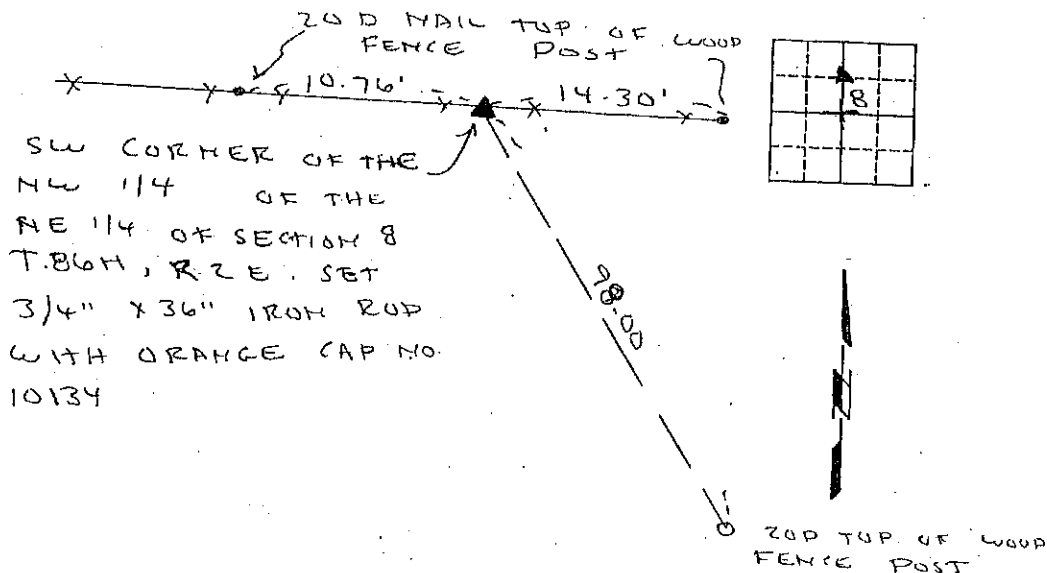 20 D NAIL TOP OF WOOD
FENCE POST
10.76'
14.30'
8
SW CORNER OF THE
NW 1/4 OF THE
NE 1/4 OF SECTION 8
T.86N, R.2E. SET
3/4" X 36" IRON ROD
WITH ORANGE CAP NO.
10134
N
20D TOP OF WOOD
FENCE POST